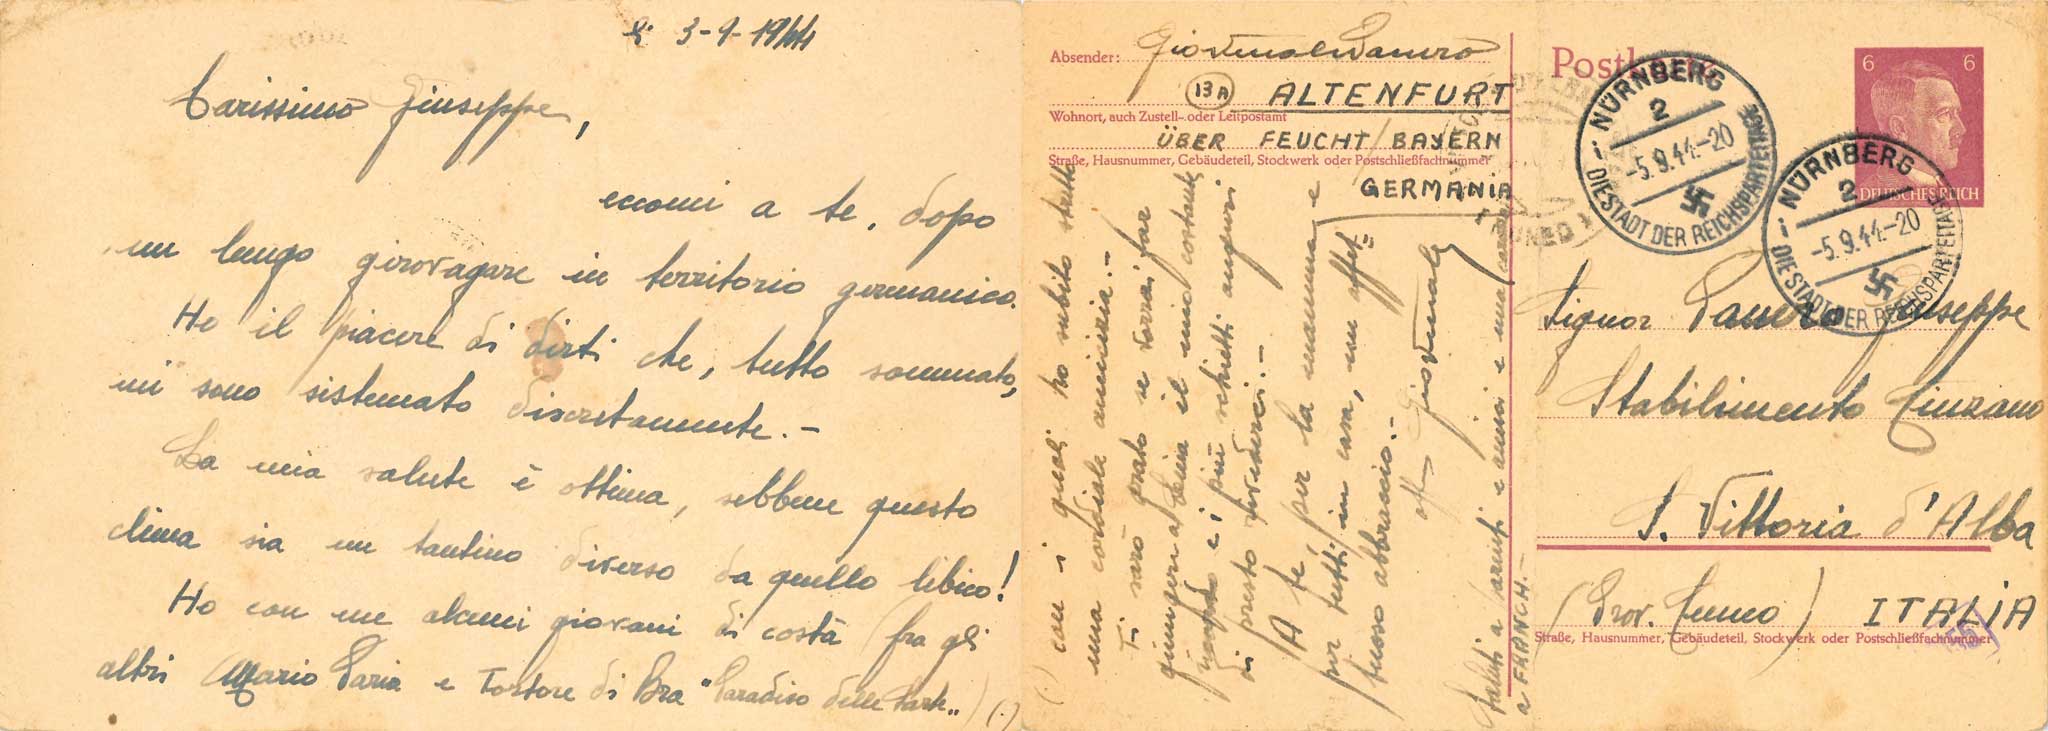 lì 3-9-1944
Carissimo Giuseppe,
eccomi a te, dopo
un lungo girovagare in territorio germanico.
Ho il piacere di dirti che, tutto sommato,
mi sono sistemato discretamente.-
La mia salute è ottima, sebbene questo
clima sia un tantino diverso da quello libico!
Ho con me alcuni giovani di costà (fra gli
altri Mario Paria e Tortore di Bra "Paradiso delle
(.)
Absender: Giovenale Panero
13A ALTENFURT
Wohnort, auch Zustell- oder Leitpostamt
ÜBER FEUCHT/BAYERN
Straße, Hausnummer, Gebäudeteil, Stockwerk oder Postschließfachnummer
GERMANIA
(.) con i quali ho subito stretto
una cordiale amicizia.-
Ti sarò grato se vorrai far
giungere a il mio costante
ricordo e i più schietti auguri
di presto rivederci.-
A te, per la mamma e
per tutti in casa, un affet=
tuoso abbraccio.-
Giovenale
Saluti a parenti e amici e una
a FRANCH.-
Postkarte
6 6
DEUTSCHES REICH
NÜRNBERG
2
i
-5.9.44.-20
DIE STADT DER REICHSPARTEITAGE
NÜRNBERG
2
i
-5.9.44.-20
DIE STADT DER REICHSPARTEITAGE
Signor Panero Giuseppe
Stabilimento Cinzano
S. Vittoria d'Alba
(Prov. Cuneo) ITALIA
Straße, Hausnummer, Gebäudeteil, Stockwerk oder Postschließfachnummer